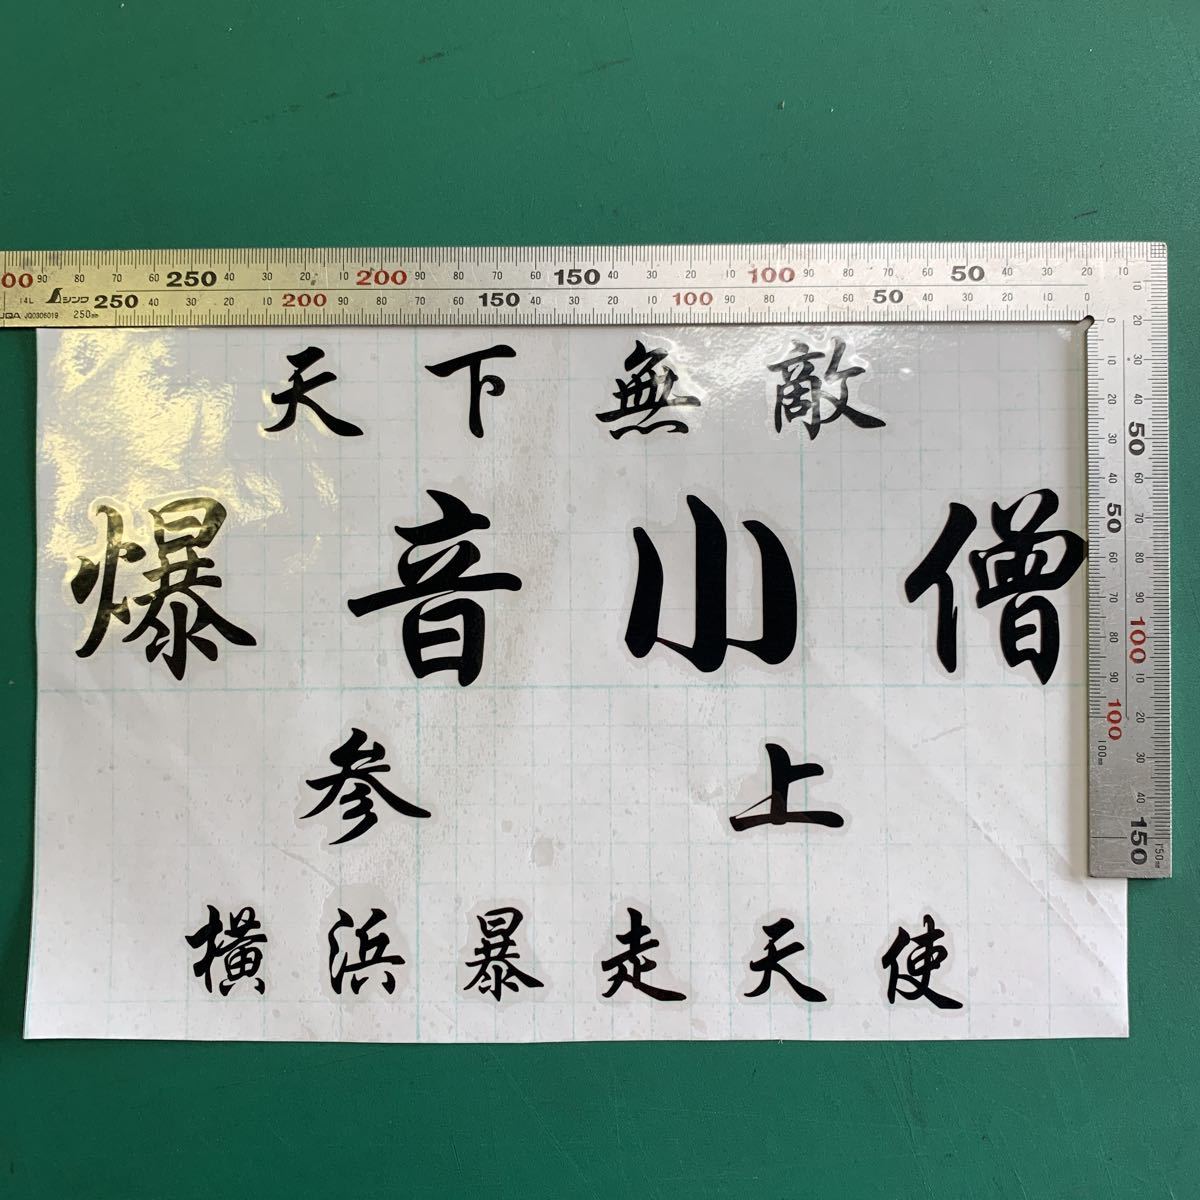 00 90 80 70 60 250 40 30 20 10 200 90 80 70 60 150 40 30 20 10 100 90 80 70 60 50 40 30 20 10
14L シンワ 250 40 30 20 10 200 90 80 70 60 150 40 30 20 10 100 90 80 70 60 50 40 30 20 10 0
JQA JQ0306019 250mm
0 10 20 30 40 50 60 70 80 90 100 100mm
10 20 30 40 50 60 70 80 90 100 10 20 30 40 150 150mm
天下無敵
爆音小僧
参上
横浜暴走天使